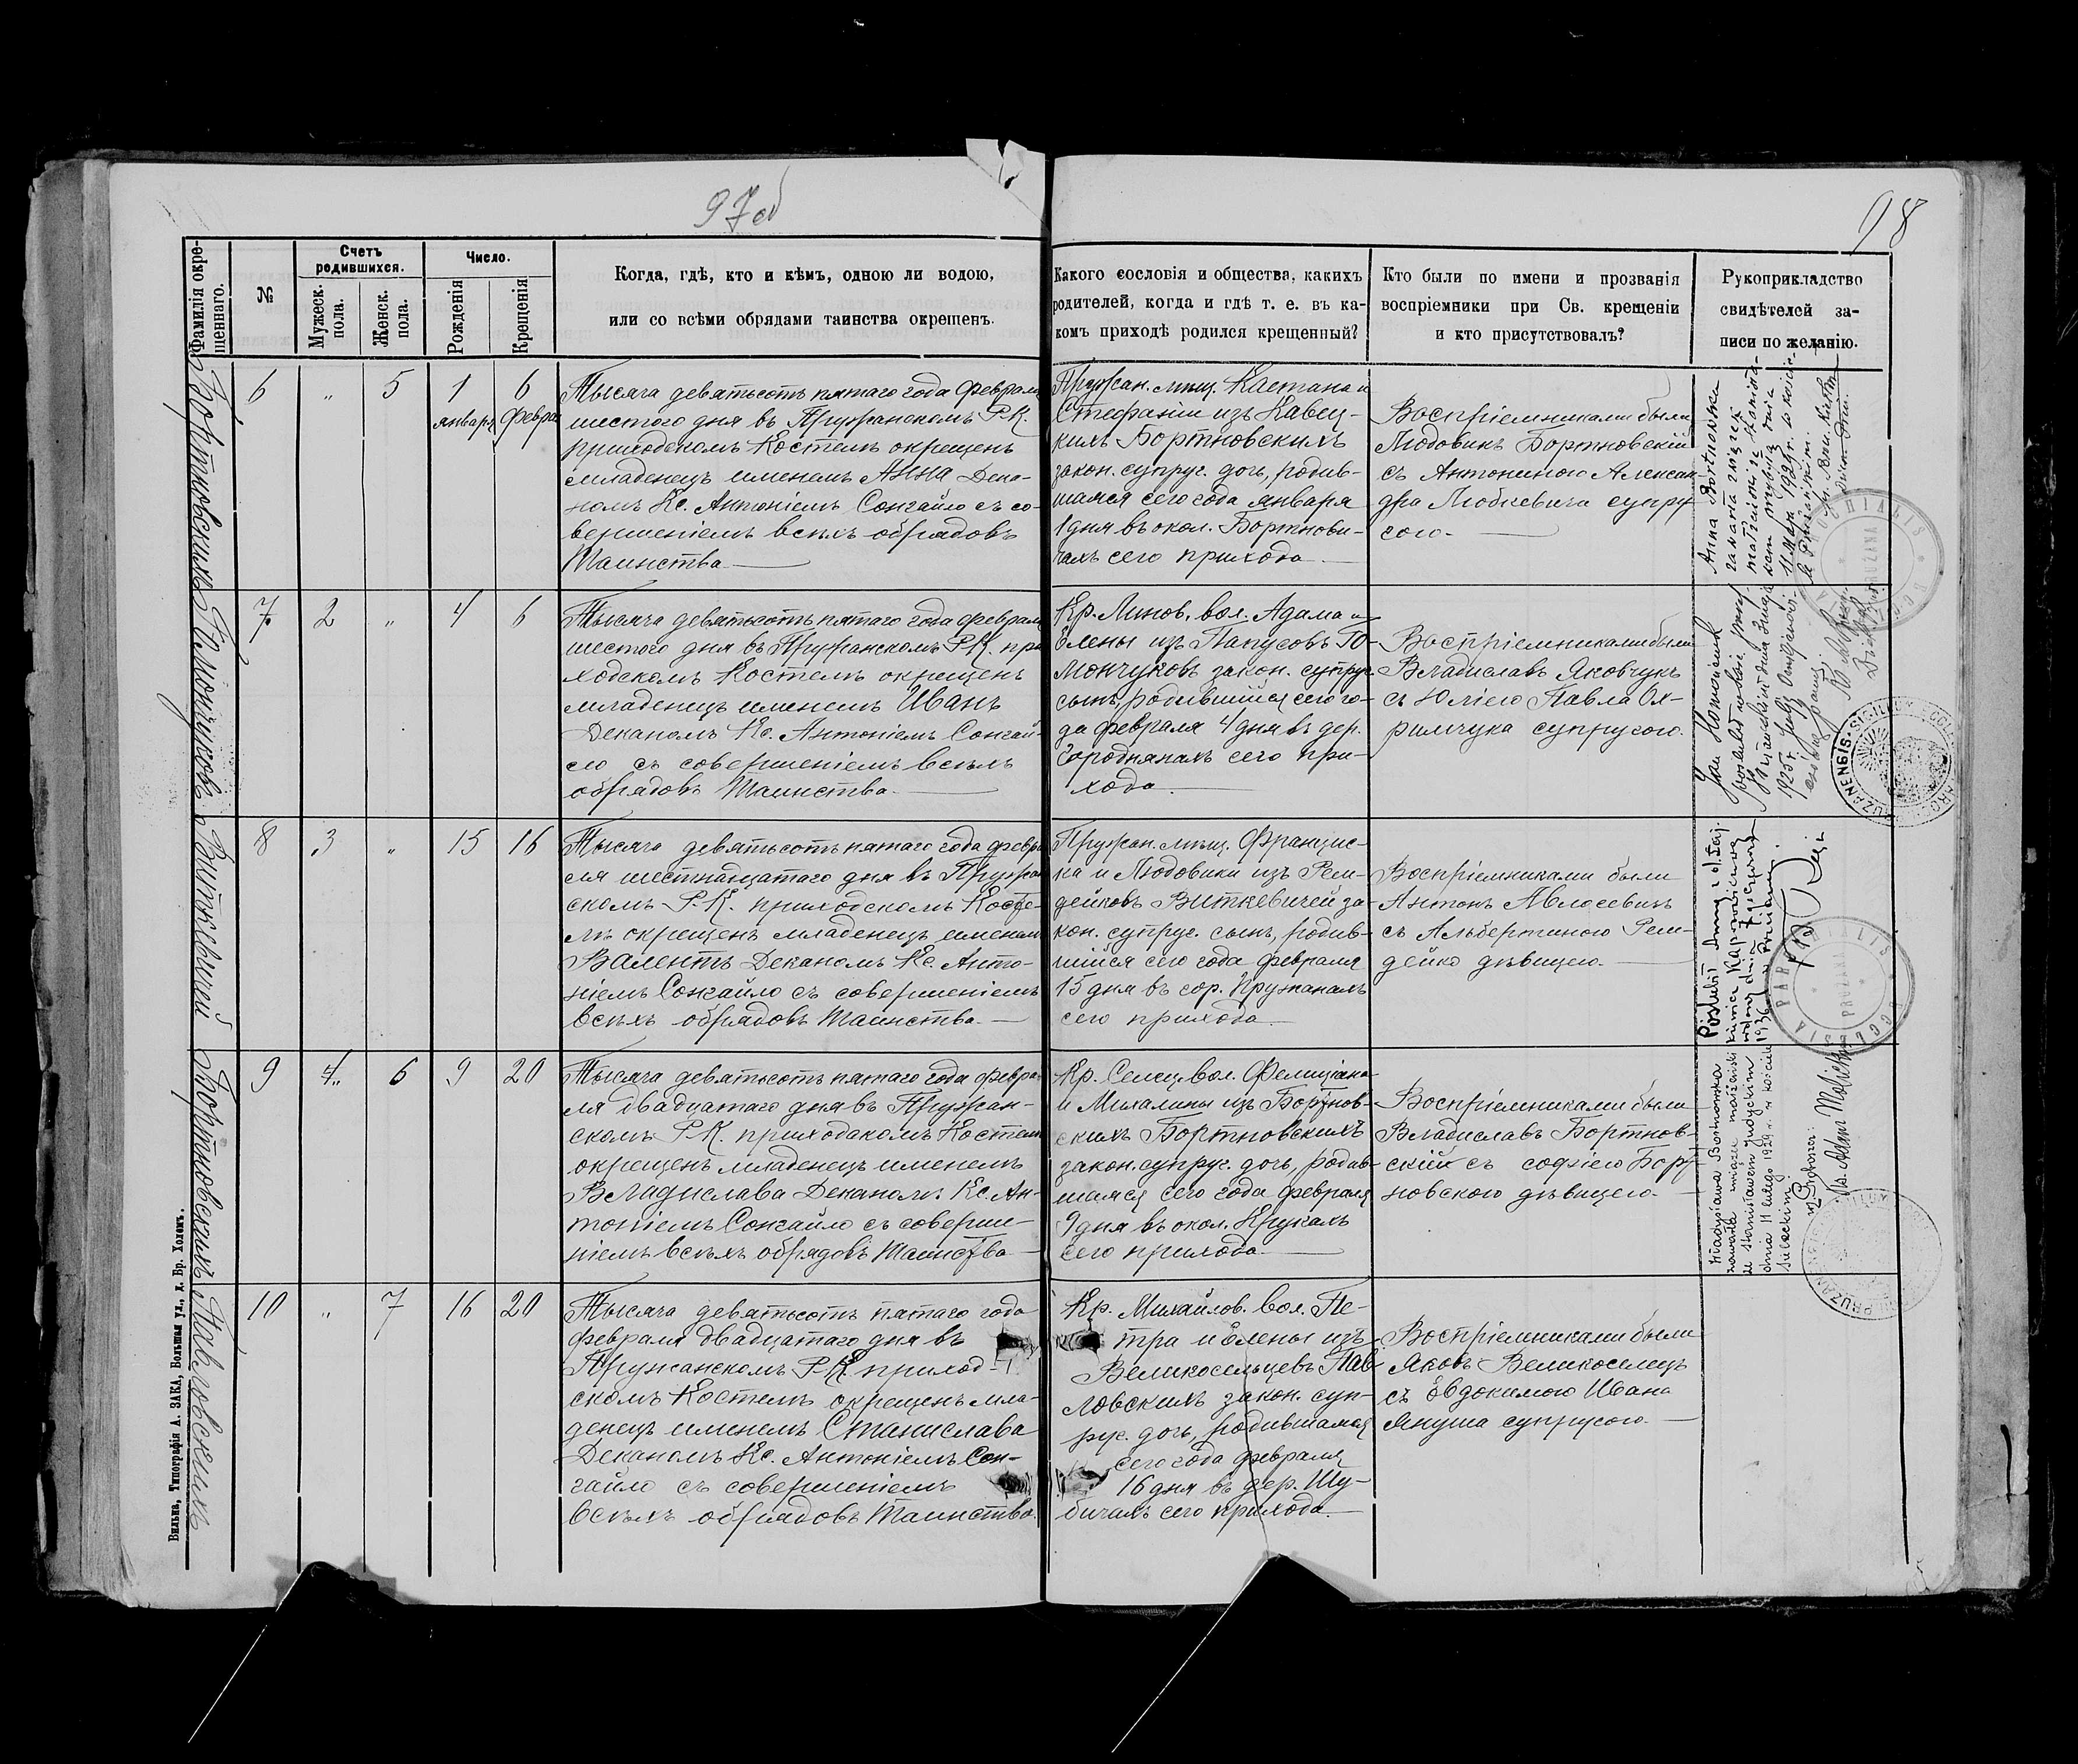 97 об
98
Фамилія окре-
щеннаго.
№
Счетъ
родившихся.
Мужеск.
пола.
Женск.
пола.
Число.
Рожденія
Крещенія
Когда, гдѣ, кто и кѣмъ, одною ли водою,
или со всѣми обрядами таинства окрещенъ.
Какого сословія и общества, какихъ
родителей, когда и гдѣ т. е. въ ка-
комъ приходѣ родился крещенный?
Кто были по имени и прозванія
воспріемники при Св. крещеніи
и кто присутствовалъ?
Рукоприкладство
свидѣтелей за-
писи по желанію.
Бортновскихъ
6
"
5
1
января
6
Феврал
Тысяча девятьсотъ пятаго года Февраля
шестого дня въ Пружанскомъ Р.К.
приходскомъ Костелѣ окрещенъ
младенецъ именемъ Анна Дека-
номъ Кс. Антоніемъ Сонгайло съ со-
вершеніемъ всѣхъ обрядовъ
Таинства
Пружан. мѣщ. Каетана и
Стефаніи изъ Кавец-
кихъ Бортновскихъ
закон. супруг. дочь, родив-
шаяся сего года января
1 дня въ окол. Бортнови-
чахъ сего прихода
Воспріемниками были
Людовикъ Бортновскій
съ Антониною Алексан
дра Любіевича супру
гою.
Anna Bortnowska
zawarła związek
małżeński ze Stanisła-
wem
1929 r. w koście-
le Prużańskim.
Юмончуковъ
7
2
"
4
6
Тысяча девятьсотъ пятаго года февраля
шестого дня въ Пружанскомъ Р.К. при
ходскомъ Костелѣ окрещенъ
младенецъ именемъ Иванъ
Деканомъ Кс. Антоніемъ Сонгай-
ло съ совершеніемъ всѣхъ
обрядовъ Таинства
Кр. Линов. вол. Адама и
Елены изъ Папусовъ Ю-
мончуковъ закон. супруг
сынъ, родившійся сего го-
да февраля 4 дня въ дер.
Городнянахъ сего при-
хода
Воспріемниками были
Владиславъ Яковчукъ
съ Юліею Павла Ох-
римчука супругою.
Jan
1925 r.
Виткевичей
8
3
"
15
16
Тысяча девятьсотъ пятаго года февра
ля шестнадцатаго дня въ Пружан
скомъ Р.К. приходскомъ Косте-
лѣ окрещенъ младенецъ именемъ
Валентъ Деканомъ Кс. Анто-
ніемъ Сонгайло съ совершеніемъ
всѣхъ обрядовъ Таинства.
Пружан. мѣщ. Францис-
ка и Людовики изъ Рем-
дейковъ Виткевичей за-
кон. супруг. сынъ, родив-
шійся сего года февраля
15 дня въ гор. Пружанахъ
сего прихода
Воспріемниками были
Антонъ Авлосевичъ
съ Альбертиною Рем-
дейко дѣвицею.
Poślubił Annę
1936
Бортновскихъ
9
4 "
6
9
20
Тысяча девятьсотъ пятаго года февра
ля двадцатаго дня въ Пружан-
скомъ Р.К. приходскомъ Костелѣ
окрещенъ младенецъ именемъ
Владислава Деканомъ Кс. Ан-
тоніемъ Сонгайло съ соверше-
ніемъ всѣхъ обрядовъ Таинства
Кр. Селец. вол. Фелиціана
и Михалины изъ Бортнов-
скихъ Бортновскихъ
закон. супруг. дочь, родив-
шаяся сего года февраля
9 дня въ окол. Крукахъ
сего прихода
Воспріемниками были
Владиславъ Бортнов-
скій съ Софіею Борт
новскою дѣвицею.
Władysława Bortnowska
zawarła związek małżeński
ze Stanisławem
dnia 11 lutego 1929 r. w kościele
Sieleckim
Proboszcz:
Ks. Adam
Павловскихъ
10
"
7
16
20
Тысяча девятьсотъ пятаго года
февраля двадцатаго дня въ
Пружанскомъ Р.К. приход-
скомъ Костелѣ окрещенъ мла-
денецъ именемъ Станислава
Деканомъ Кс. Антоніемъ Сон-
гайло съ совершеніемъ
всѣхъ обрядовъ Таинства
Кр. Михайлов. вол. Пе-
тра и Елены изъ
Великосельцевъ Пав
ловскихъ закон. суп-
руг. дочь, родившаяся
сего года февраля
16 дня въ дер. Шу-
бичахъ сего прихода
Воспріемниками были
Яковъ Великоселецъ
съ Евдокимою Ивана
Януша супругою.
Вильна, Типографія А. ЗАКА, Большая ул., д. Бр. Холемъ.